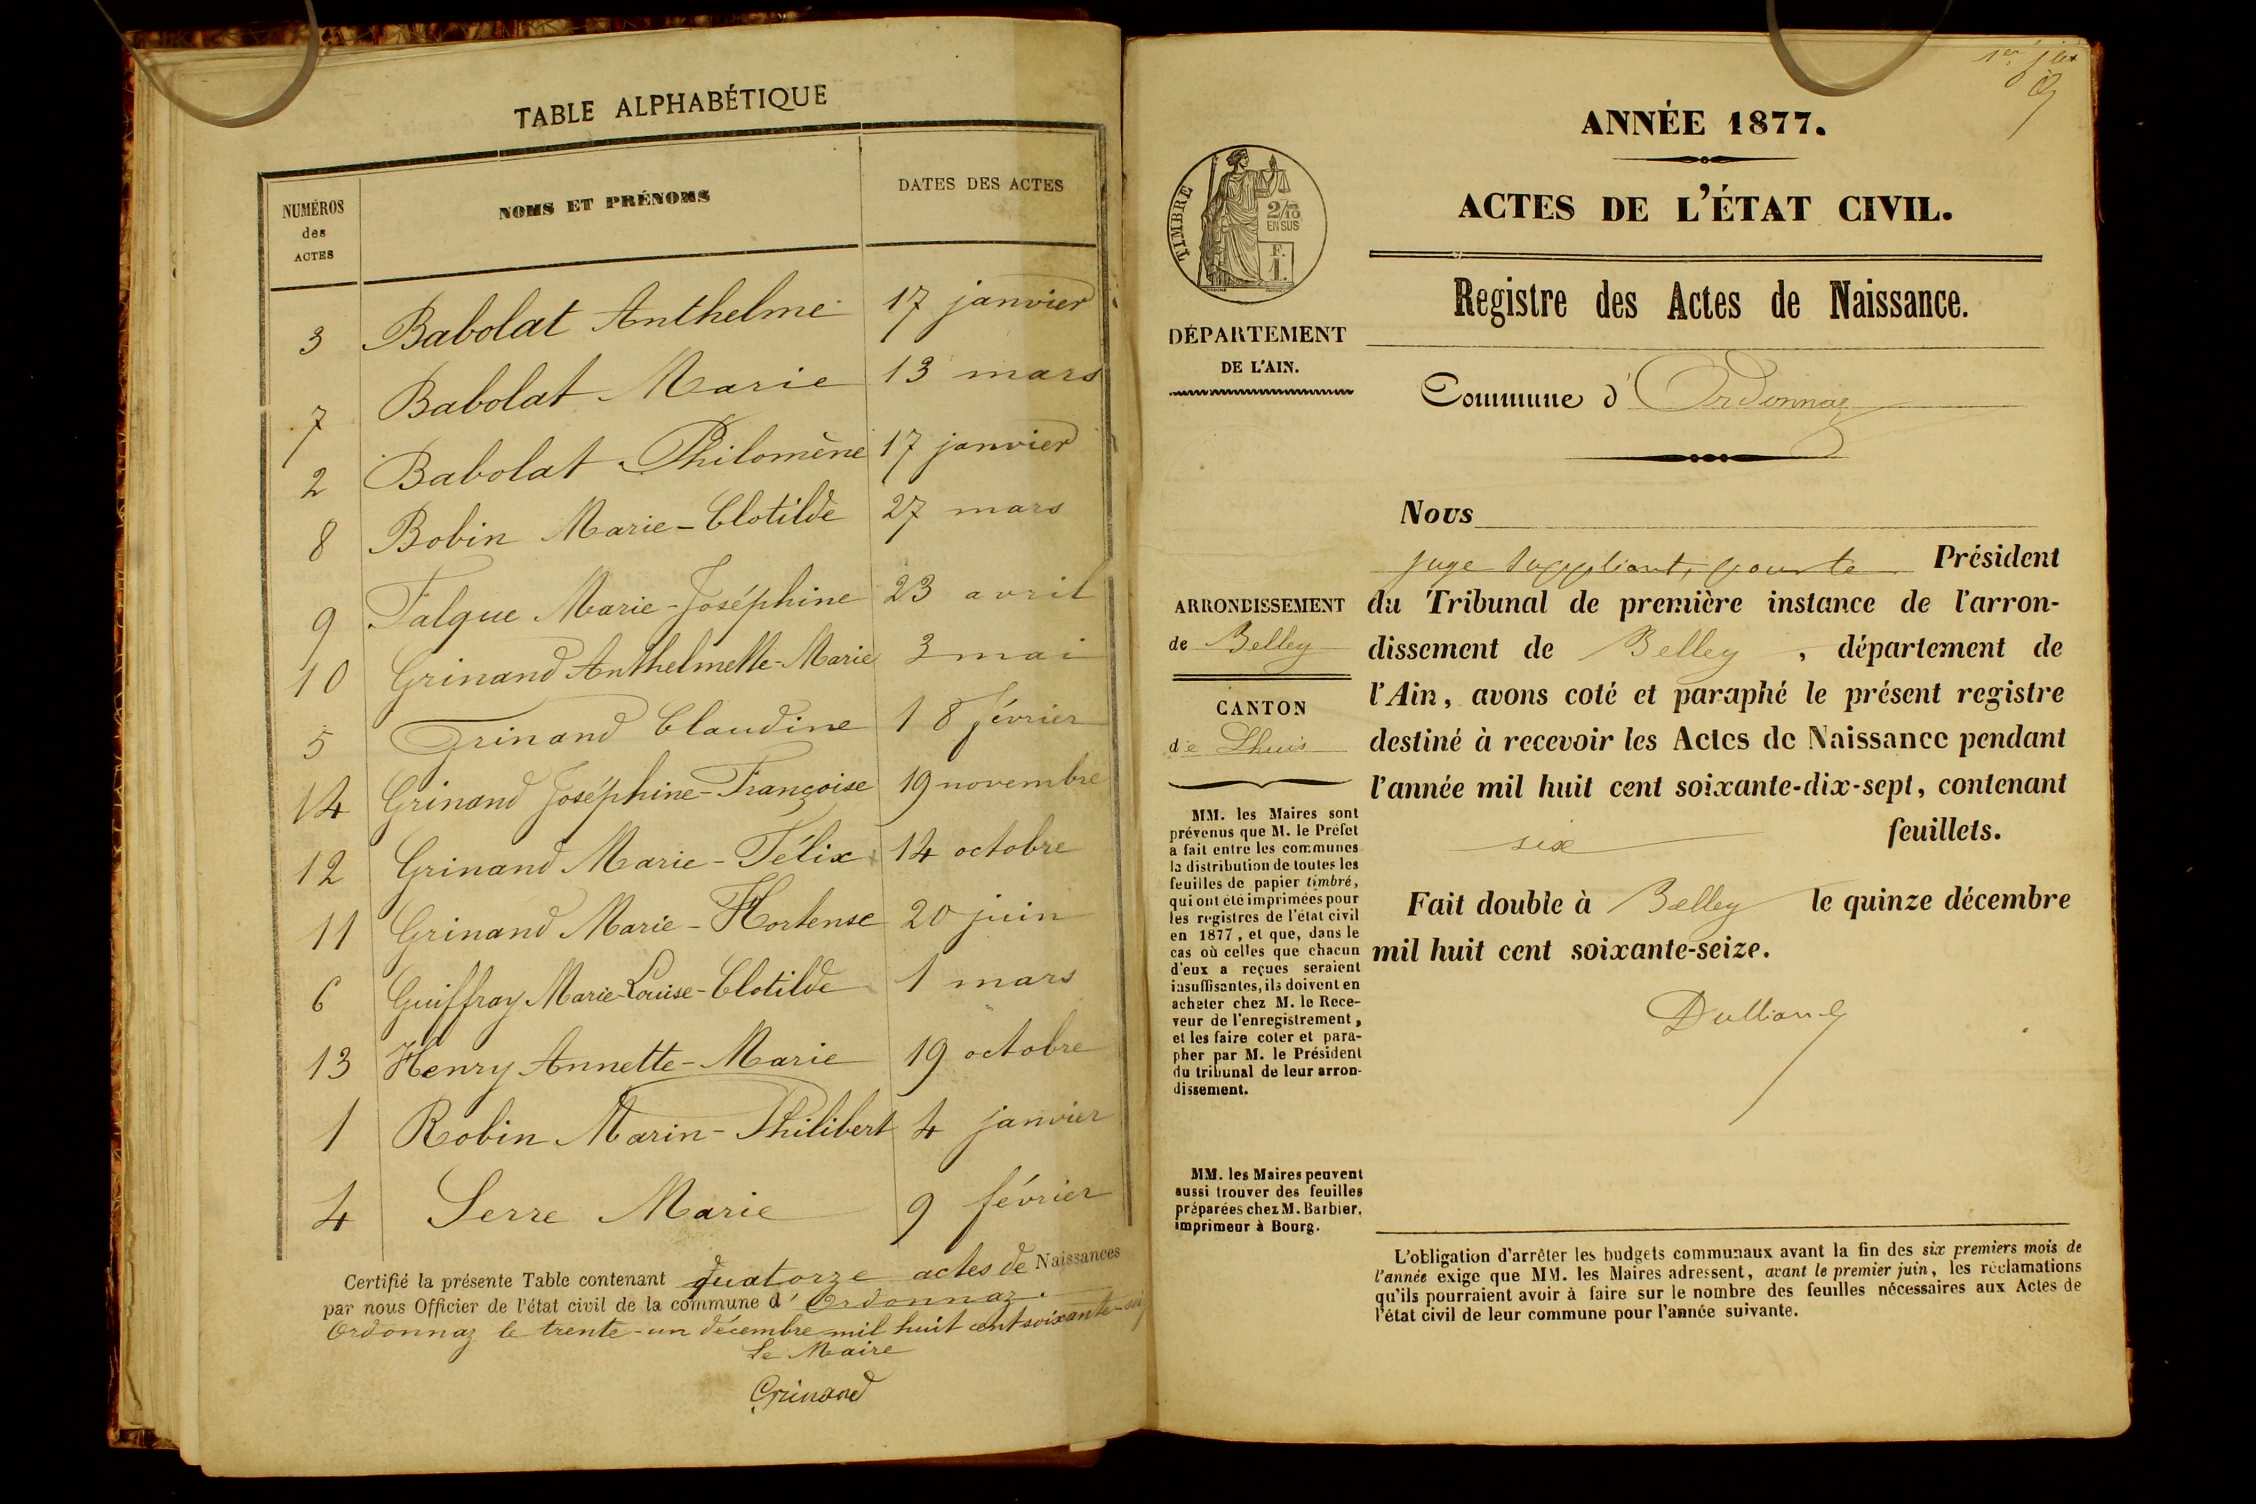 TABLE ALPHABÉTIQUE
NUMÉROS des ACTES
NOMS ET PRÉNOMS
DATES DES ACTES
3 Babolat Anthelme 17 janvier
7 Babolat Marie 13 mars
2 Babolat Philomène 17 janvier
8 Bobin Marie-Clotilde 27 mars
9 Falque Marie-Joséphine 23 avril
10 Grinand Anthelmette-Marie 3 mai
5 Grinand Claudine 18 février
14 Grinand Joséphine-Françoise 19 novembre
12 Grinand Marie-Félix 14 octobre
11 Grinand Marie-Hortense 20 juin
6 Guiffray Marie Louise-Clotilde 1 mars
13 Henry Annette-Marie 19 octobre
1 Robin Marin-Philibert 4 janvier
4 Serre Marie 9 février
Certifié la présente Table contenant quatorze actes de Naissances
par nous Officier de l'état civil de la commune d'Ordonnaz.
Ordonnaz le trente-un décembre mil huit cent soixante-
Le Maire
Grinand
ANNÉE 1877.
ACTES DE L'ÉTAT CIVIL.
TIMBRE
2/10
EN SUS
F.
1.
Registre des Actes de Naissance.
DÉPARTEMENT
DE L'AIN.
Commune d'Ordonnaz
Nous
juge suppléant, pour le Président
du Tribunal de première instance de l'arron-
dissement de Belley, département de
l'Ain, avons coté et paraphé le présent registre
destiné à recevoir les Actes de Naissance pendant
l'année mil huit cent soixante-dix-sept, contenant
six feuillets.
Fait double à Belley le quinze décembre
mil huit cent soixante-seize.
ARRONDISSEMENT
de Belley
CANTON
de Lhuis
MM. les Maires sont
prévenus que M. le Préfet
a fait entre les communes
la distribution de toutes les
feuilles de papier timbré,
qui ont été imprimées pour
les registres de l'état civil
en 1877, et que, dans le
cas où celles que chacun
d'eux a reçues seraient
insuffisantes, ils doivent en
acheter chez M. le Rece-
veur de l'enregistrement,
et les faire coter et para-
pher par M. le Président
du tribunal de leur arron-
dissement.
MM. les Maires peuvent
aussi trouver des feuilles
préparées chez M. Barbier,
imprimeur à Bourg.
L'obligation d'arrêter les budgets communaux avant la fin des six premiers mois de
l'année exige que MM. les Maires adressent, avant le premier juin, les réclamations
qu'ils pourraient avoir à faire sur le nombre des feuilles nécessaires aux Actes de
l'état civil de leur commune pour l'année suivante.